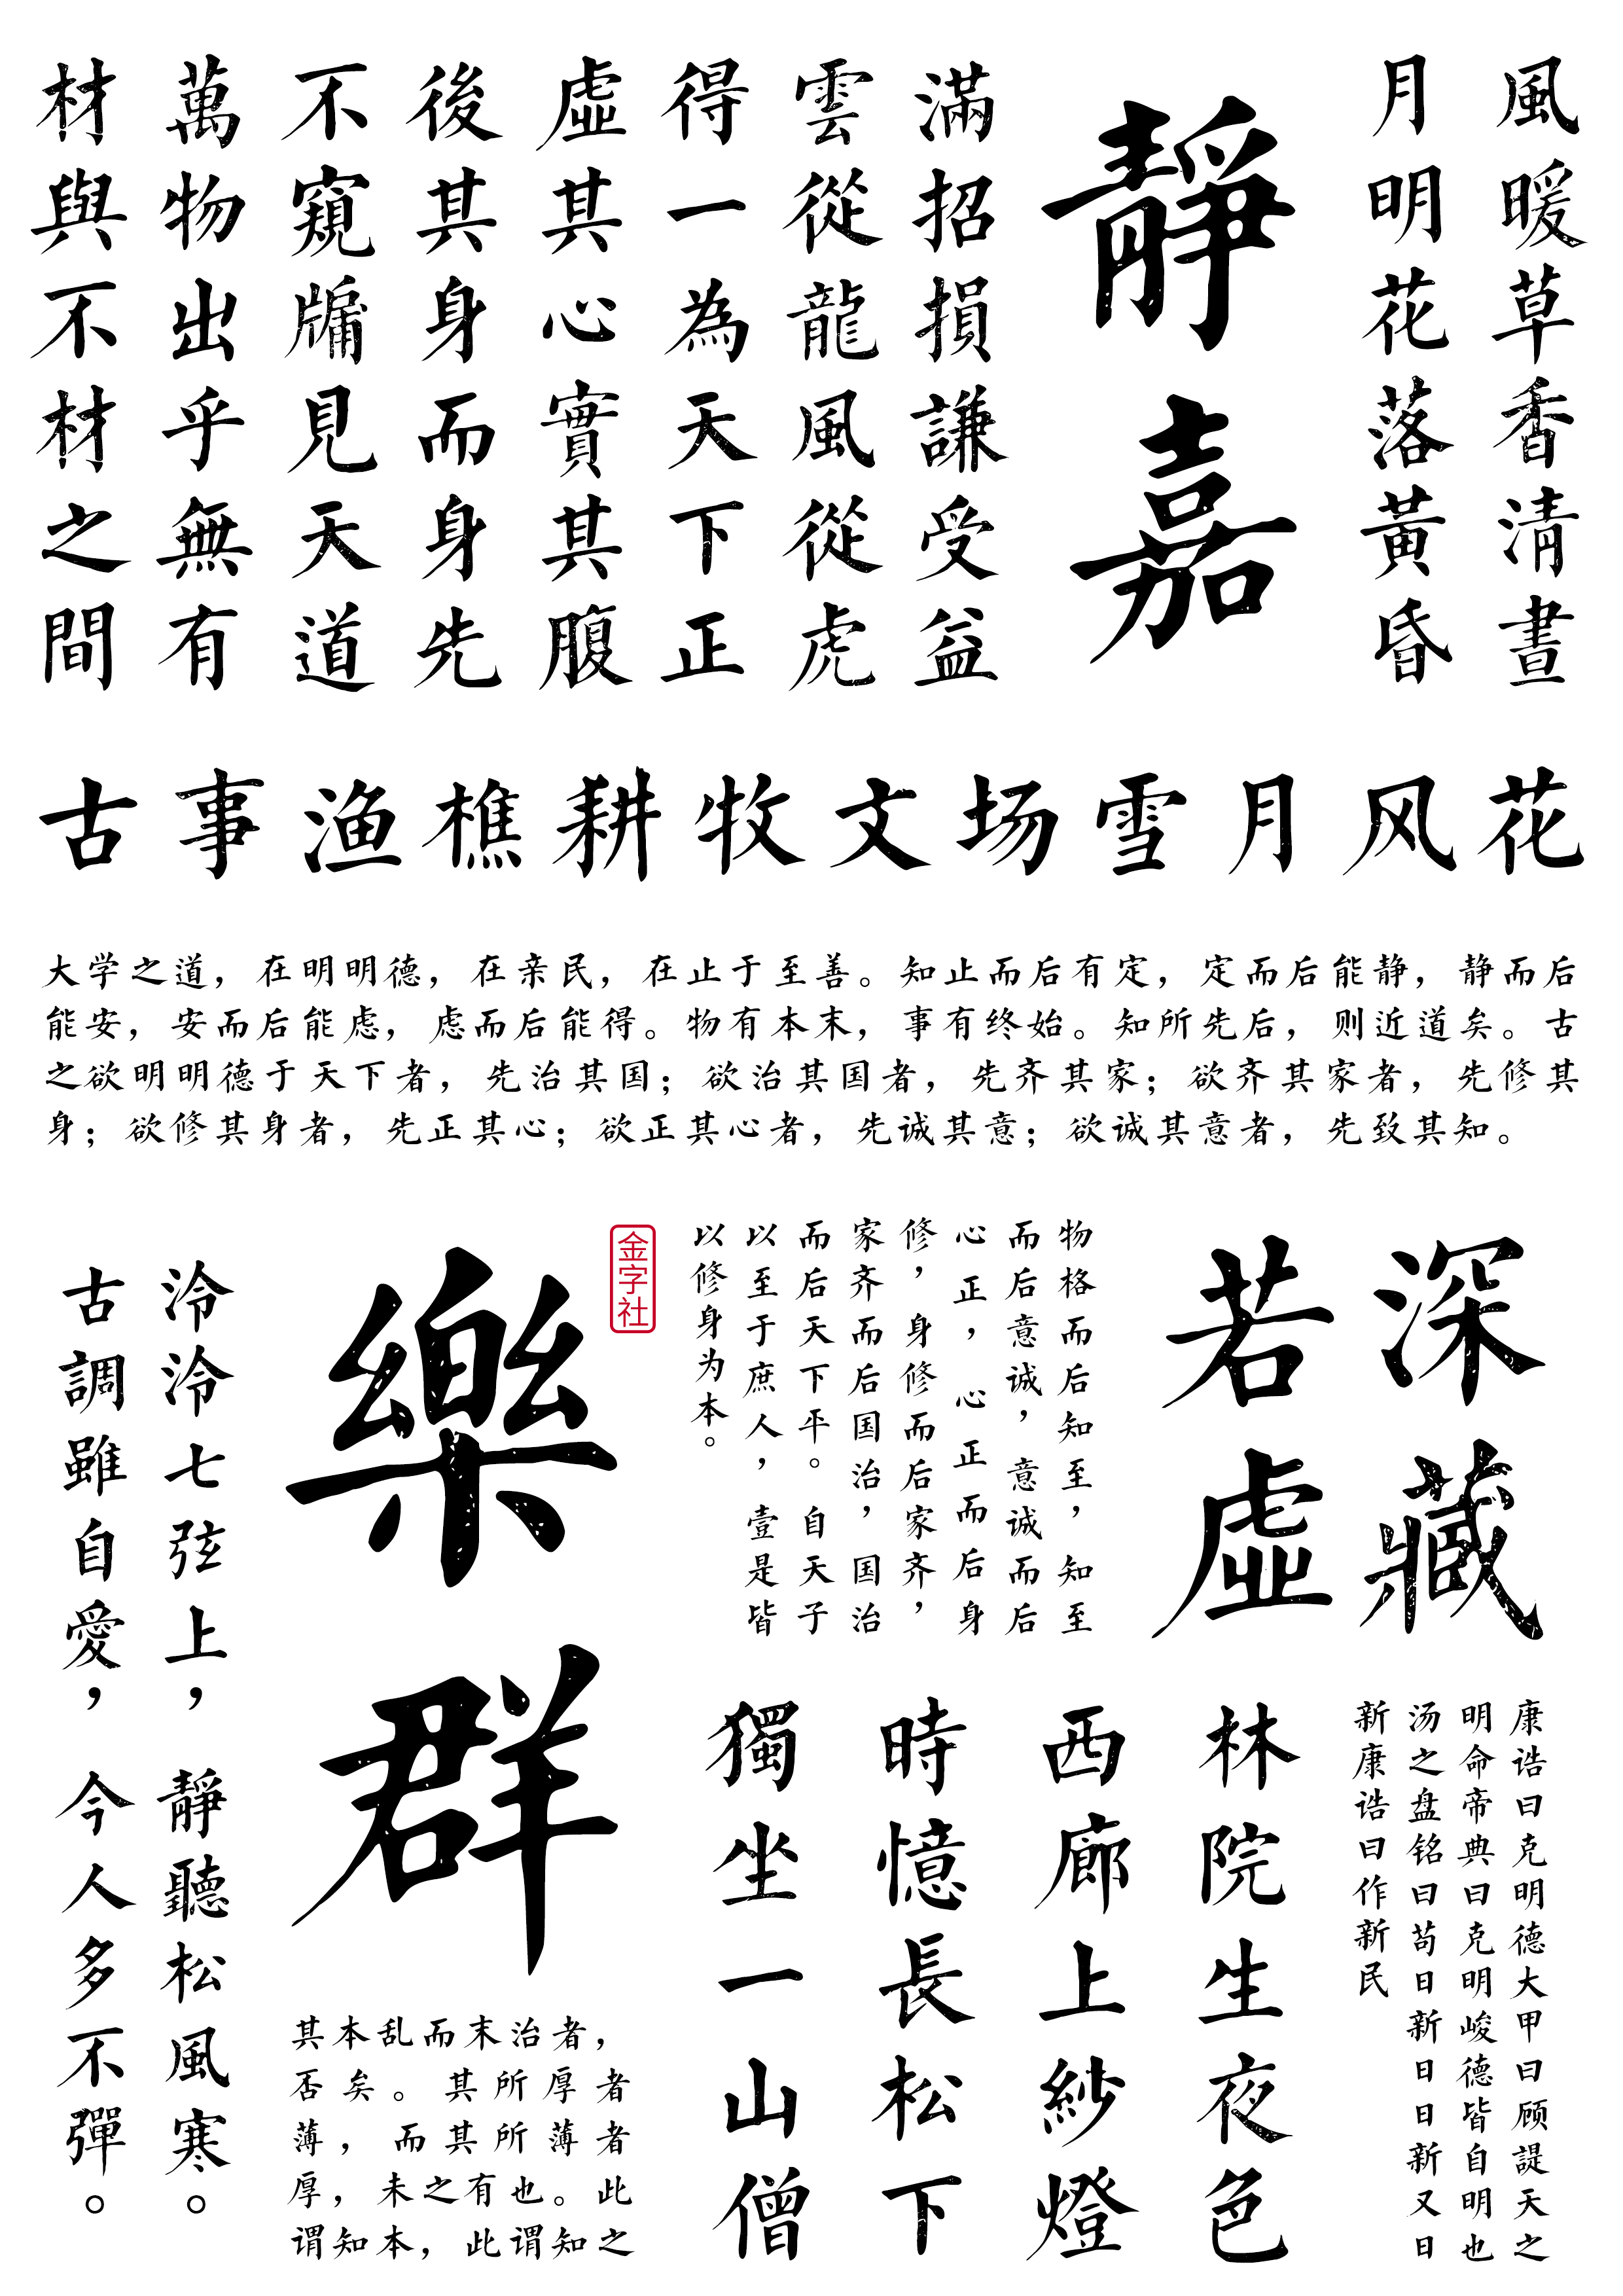 風暖草香清晝
月明花落黃昏
靜嘉
滿招損謙受益
雲從龍風從虎
得一為天下正
虛其心實其腹
後其身而身先
不窺牖見天道
萬物出乎無有
材與不材之間
古事渔樵耕牧文场雪月风花
大学之道，在明明德，在亲民，在止于至善。知止而后有定，定而后能静，静而后
能安，安而后能虑，虑而后能得。物有本末，事有终始。知所先后，则近道矣。古
之欲明明德于天下者，先治其国；欲治其国者，先齐其家；欲齐其家者，先修其
身；欲修其身者，先正其心；欲正其心者，先诚其意；欲诚其意者，先致其知。
深藏
若虛
物格而后知至，知至
而后意诚，意诚而后
心正，心正而后身
修，身修而后家齐，
家齐而后国治，国治
而后天下平。自天子
以至于庶人，壹是皆
以修身为本。
金字社
樂群
泠泠七弦上，靜聽松風寒。
古調雖自愛，今人多不彈。
康诰曰克明德大甲曰顾諟天之
明命帝典曰克明峻德皆自明也
汤之盘铭曰苟日新日日新又日
新康诰曰作新民
林院生夜色
西廊上紗燈
時憶長松下
獨坐一山僧
其本乱而末治者，
否矣。其所厚者
薄，而其所薄者
厚，未之有也。此
谓知本，此谓知之